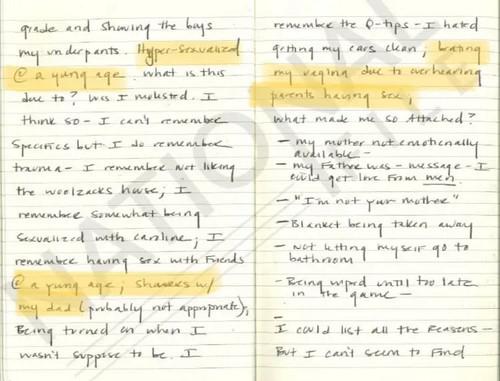 grade and showing the boys
my underpants. Hyper-sexualized
@ a yung age. what is this
due to? Was I molested. I
think so - I can't remember
specifics but I do remember
trauma - I remember not liking
the woolzacks house; I
remember somewhat being
sexualized with caroline; I
remember having sex with friends
@ a yung age; showers w/
my dad (probably not appropriate);
Being turned on when I
wasn't suppose to be. I
remember the Q-tips - I hated
getting my ears clean;
my vagina due to overhearing
parents having sex;
what made me so Attached?
- my mother not emotionally
available -
- my Father was - message - I
could get love from men.
- "I'm not your mother"
- Blanket being taken away
- Not letting myself go to
bathroom
- Being until too late
in the game -
-
I could list all the reasons -
But I can't seem to find
NATIONAL FILE